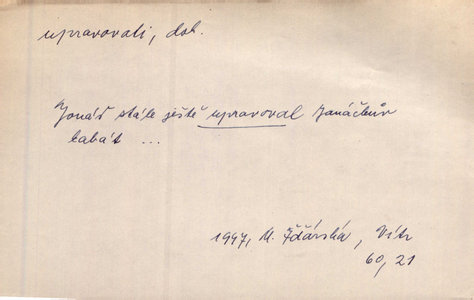 upravovati, dok.
Jonáš stále ještě upravoval Janáčkův
kabát ...
1947, M. Žďárská, Vítr
60, 21